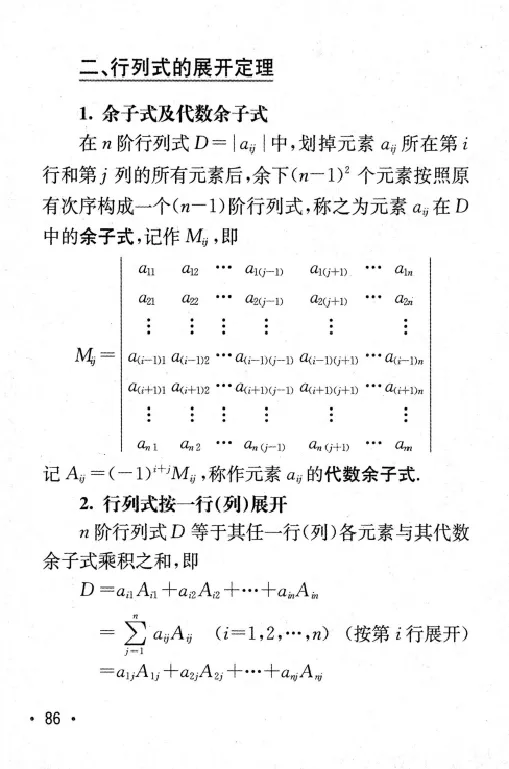 二、行列式的展开定理
1. 余子式及代数余子式
在 n 阶行列式 D=|aᵢⱼ|中,划掉元素 aᵢⱼ 所在第 i
行和第 j 列的所有元素后,余下(n－1)² 个元素按照原
有次序构成一个(n－1)阶行列式,称之为元素 aᵢⱼ 在 D
中的余子式,记作 Mᵢⱼ,即
a₁₁ a₁₂ ⋯ a₁₍ⱼ₋₁₎ a₁₍ⱼ₊₁₎ ⋯ a₁ₙ
a₂₁ a₂₂ ⋯ a₂₍ⱼ₋₁₎ a₂₍ⱼ₊₁₎ ⋯ a₂ₙ
⋮ ⋮ ⋮ ⋮ ⋮ ⋮
Mᵢⱼ= a₍ᵢ₋₁₎₁ a₍ᵢ₋₁₎₂ ⋯ a₍ᵢ₋₁₎₍ⱼ₋₁₎ a₍ᵢ₋₁₎₍ⱼ₊₁₎ ⋯ a₍ᵢ₋₁₎ₙ
a₍ᵢ₊₁₎₁ a₍ᵢ₊₁₎₂ ⋯ a₍ᵢ₊₁₎₍ⱼ₋₁₎ a₍ᵢ₊₁₎₍ⱼ₊₁₎ ⋯ a₍ᵢ₊₁₎ₙ
⋮ ⋮ ⋮ ⋮ ⋮ ⋮
aₙ₁ aₙ₂ ⋯ aₙ₍ⱼ₋₁₎ aₙ₍ⱼ₊₁₎ ⋯ aₙₙ
记 Aᵢⱼ=(－1)ⁱ⁺ʲMᵢⱼ,称作元素 aᵢⱼ 的代数余子式.
2. 行列式按一行(列)展开
n 阶行列式 D 等于其任一行(列)各元素与其代数
余子式乘积之和,即
D=aᵢ₁Aᵢ₁+aᵢ₂Aᵢ₂+⋯+aᵢₙAᵢₙ
=∑ⱼ₌₁ⁿ aᵢⱼAᵢⱼ (i=1,2,⋯,n) (按第 i 行展开)
=a₁ⱼA₁ⱼ+a₂ⱼA₂ⱼ+⋯+aₙⱼAₙⱼ
· 86 ·